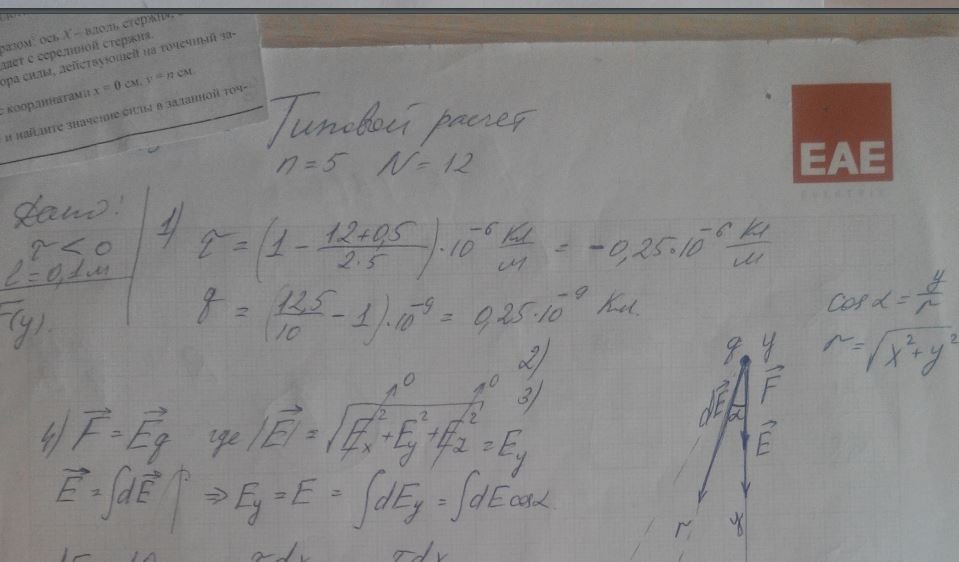 разом: ось X – вдоль стержня,
дает с серединой стержня.
ора силы, действующей на точечный за-
с координатами x = 0 см, y = n см.
и найдите значение силы в заданной точ-
EAE
Типовой расчет
n = 5 N = 12
Дано:
τ < 0
l = 0,1 м
F(y).
1) τ = (1 - (12+0,5)/(2·5))·10⁻⁶ Кл/м = -0,25·10⁻⁶ Кл/м
q = (12,5/10 - 1)·10⁻⁹ = 0,25·10⁻⁹ Кл.
cos α = y/r
r = √(x² + y²)
2)
3)
q y
dE⃗ α F⃗
E⃗
r y
4) F⃗ = E⃗q где |E⃗| = √(Eₓ² + E_y² + E_z²) = E_y
0 0
E⃗ = ∫dE⃗ ⇒ E_y = E = ∫dE_y = ∫dE cos α.
τdx τdx